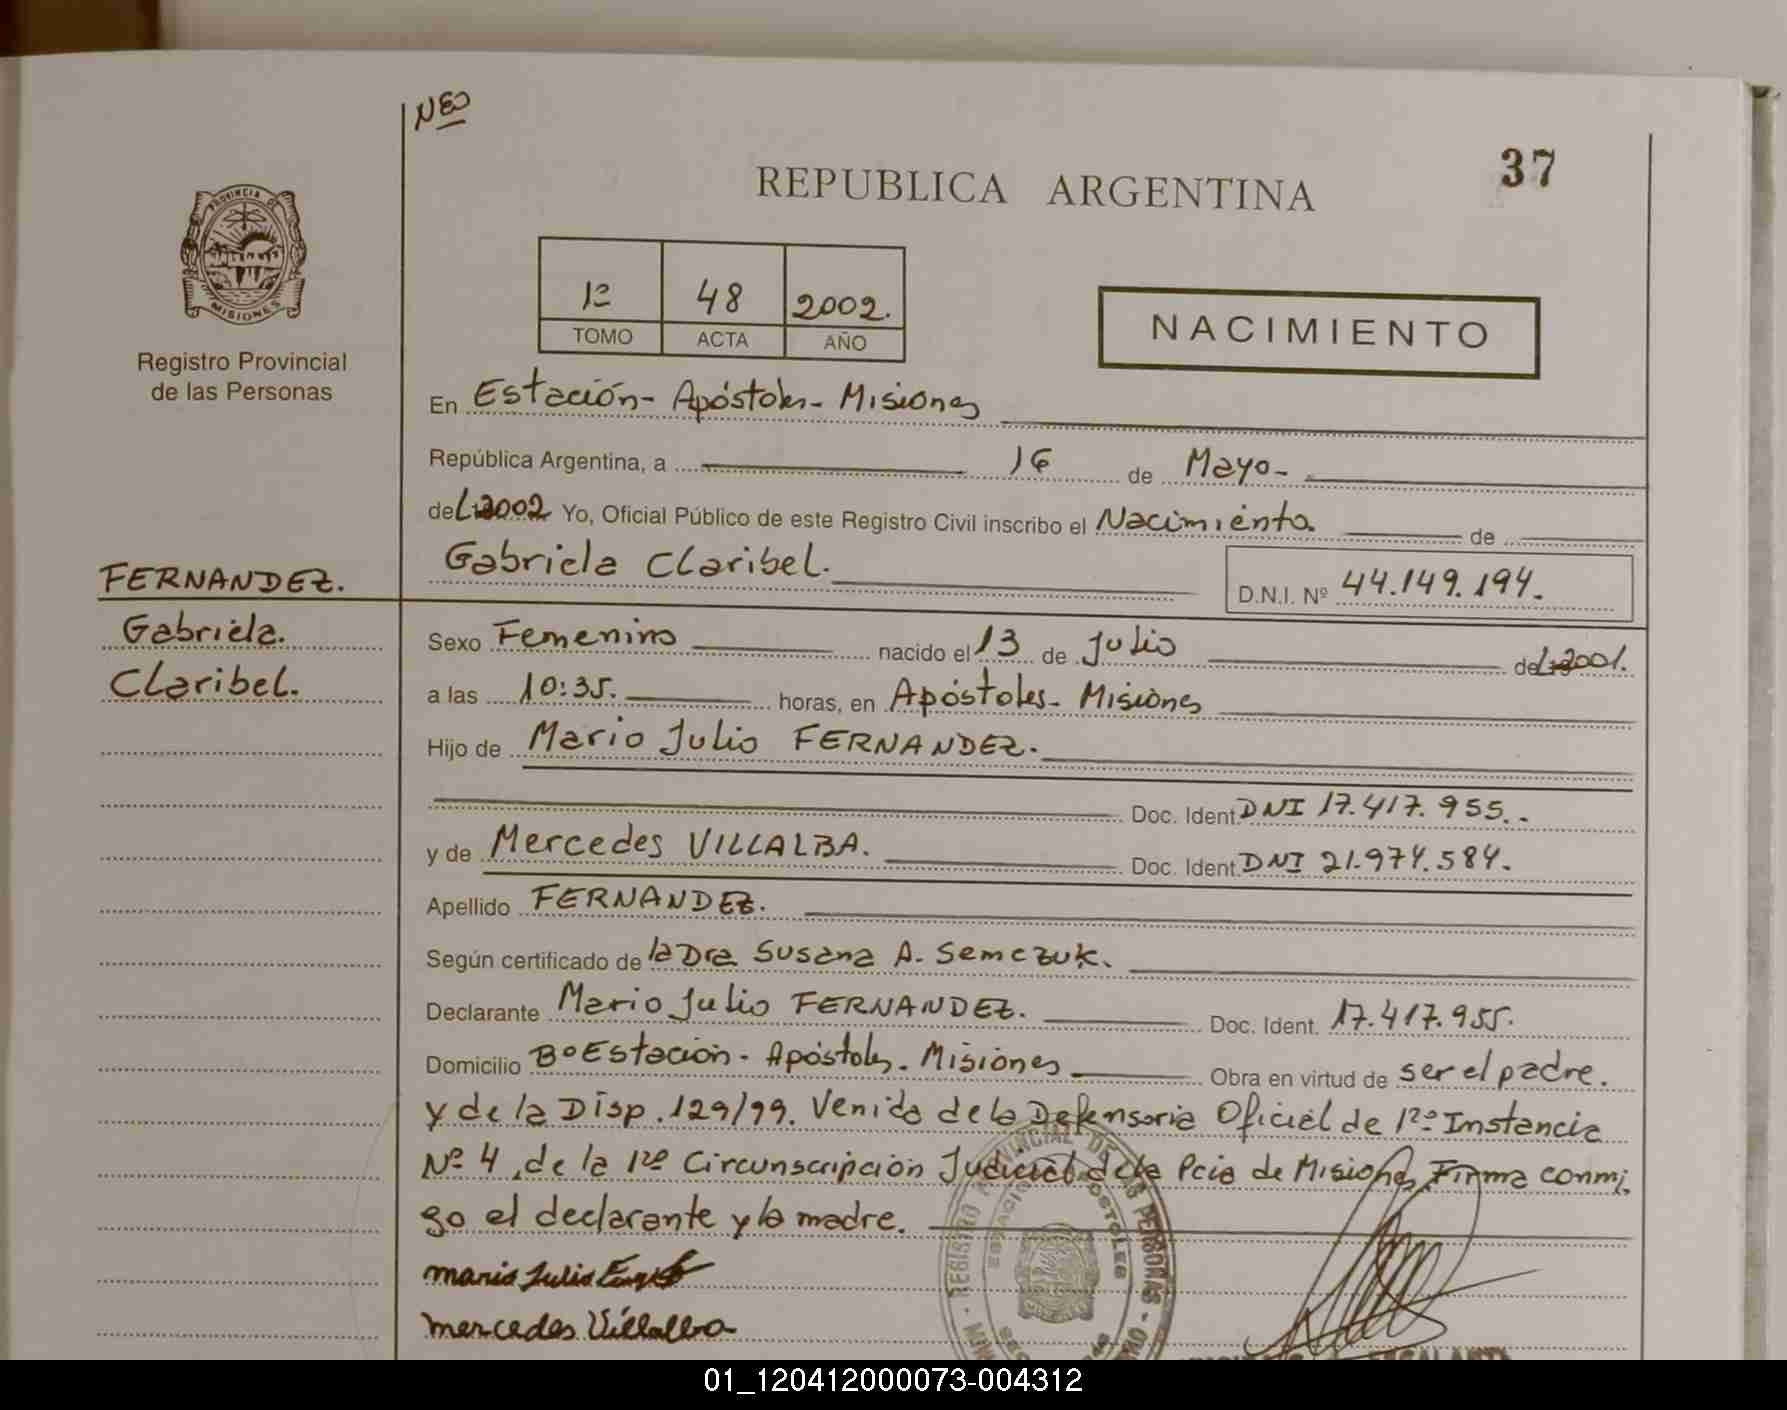 NEO
37
REPUBLICA ARGENTINA
PROVINCIA DE
MISIONES
Registro Provincial
de las Personas
1º 48 2002.
TOMO ACTA AÑO
NACIMIENTO
En Estación - Apóstoles - Misiones
República Argentina, a 16 de Mayo -
del 2002 Yo, Oficial Público de este Registro Civil inscribo el Nacimiento de
Gabriela Claribel. D.N.I. Nº 44.149.194.
FERNANDEZ.
Gabriela.
Claribel.
Sexo Femenino nacido el 13 de Julio del 2001.
a las 10:35. horas, en Apóstoles - Misiones
Hijo de Mario Julio FERNANDEZ.
Doc. Ident. DNI 17.417.955.
y de Mercedes VILLALBA. Doc. Ident. DNI 21.974.584.
Apellido FERNANDEZ.
Según certificado de la Dra Susana A. Semczuk.
Declarante Mario Julio FERNANDEZ. Doc. Ident. 17.417.955.
Domicilio Bº Estación - Apóstoles - Misiones Obra en virtud de ser el padre.
y de la Disp. 129/99. Venida de la Defensoria Oficial de 1ra Instancia
Nº 4, de la 1ra Circunscripción Judicial de la Pcia de Misiones, Firma conmi
go el declarante y la madre.
mario Julio
mercedes Villalba
REGISTRO PROVINCIAL DE LAS PERSONAS
ESTACION APOSTOLES
01_120412000073-004312